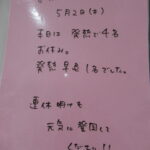 5月2日(木)
本日は 発熱で4名
お休み。
発熱 早退 1名でした。
連休 明けも
元気に 登園して
ください!!